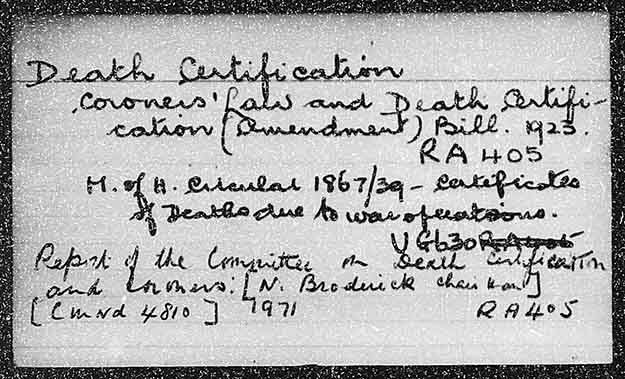 Death Certification
Coroners' Law and Death Certifi-
cation (Amendment) Bill. 1923.
RA 405
M. of H. Circular 1867/39 - Certificates
of Deaths due to war operations.
UG630
Report of the Committee on Death Certification
and coroners. [N. Broderick chairman]
[Cmnd 4810] 1971 RA405